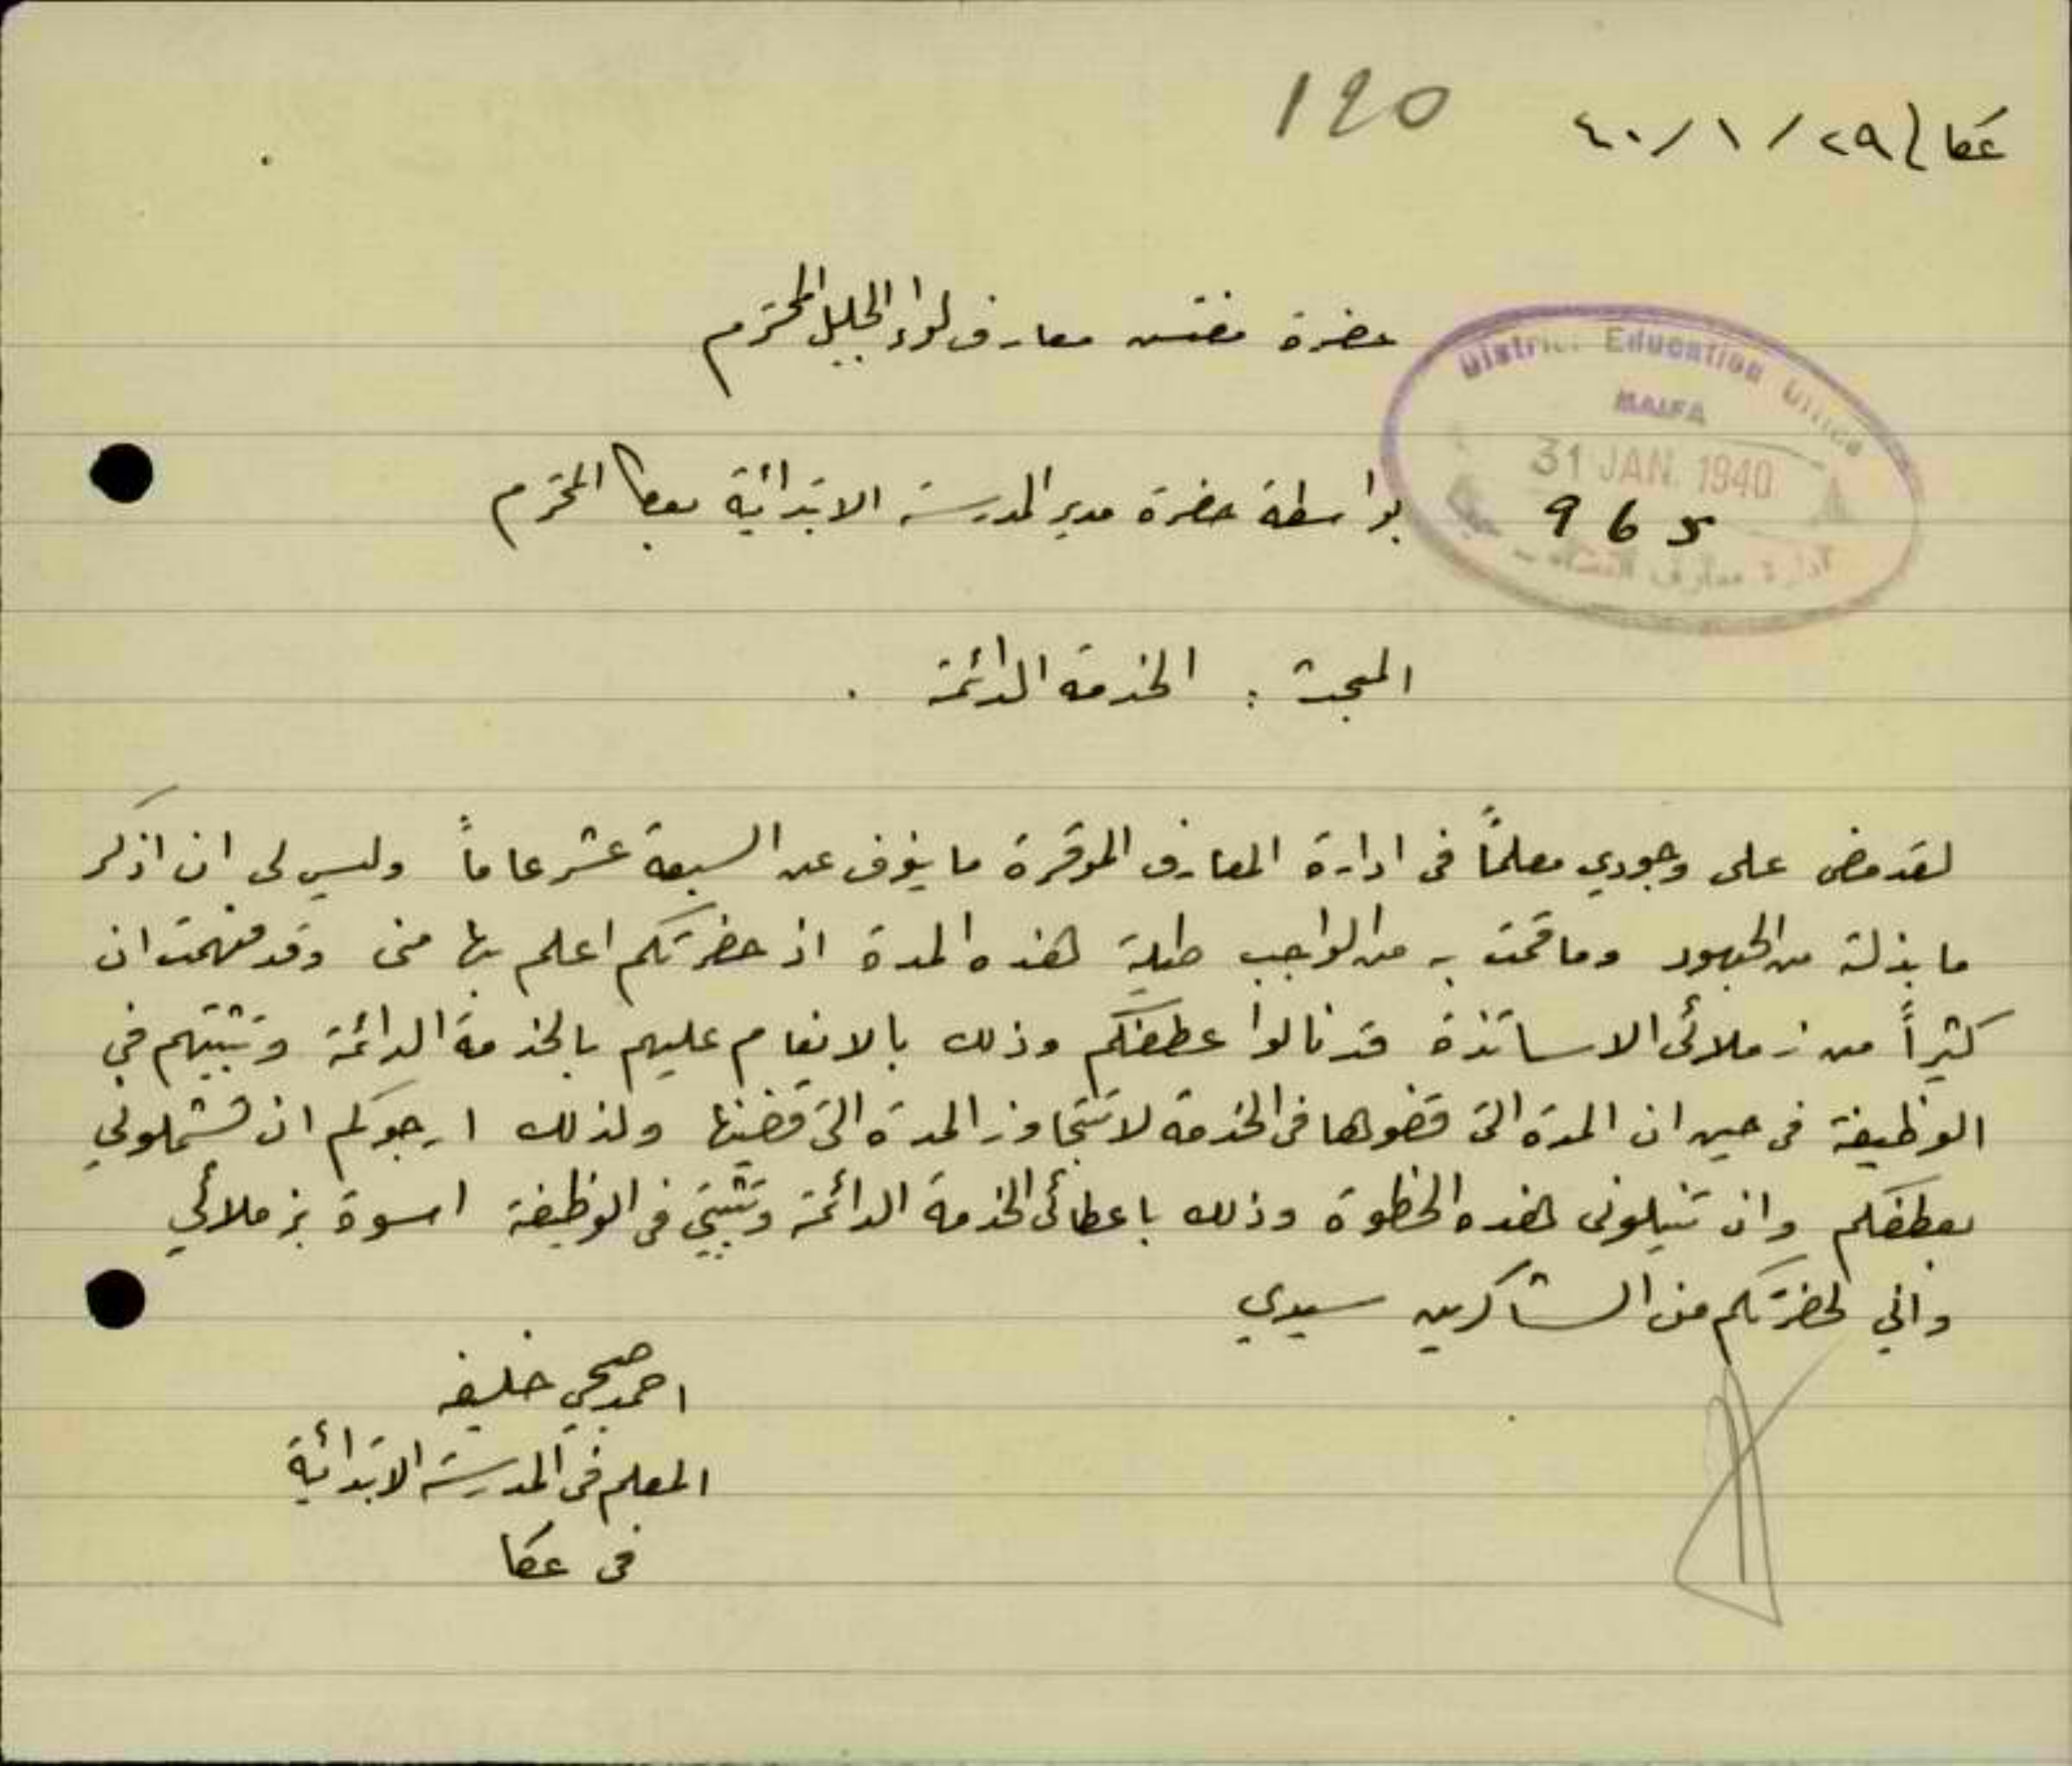 120
عكا / ٢٩ / ١ / ٤٠
حضرة مفتش معارف لواء الجليل المحترم
District Education Office
HAIFA
31 JAN. 1940
965
بواسطة حضرة مدير المدرسة الابتدائية بعكا المحترم
المبحث : الخدمة الدائمة .
لقد مضى على وجودي معلماً في ادارة المعارف الموقرة ما ينوف عن السبعة عشر عاماً وليس لي ان اذكر
ما بذلته من الجهود وما قمت به من الواجب طيلة هذه المدة اذ حضرتكم اعلم بها مني وقد فهمت ان
كثيراً من زملائي الاساتذة قد نالوا عطفكم وذلك بالانعام عليهم بالخدمة الدائمة وتثبيتهم في
الوظيفة في حين ان المدة التي قضوها في الخدمة لا تتجاوز المدة التي قضيتها ولذلك ارجوكم ان تشملوني
بعطفكم وان تنيلوني هذه الحظوة وذلك باعطائي الخدمة الدائمة وتثبيتي في الوظيفة اسوة بزملائي
واني لحضرتكم من الشاكرين سيدي
احمد صبحي خليفه
المعلم في المدرسة الابتدائية
في عكا